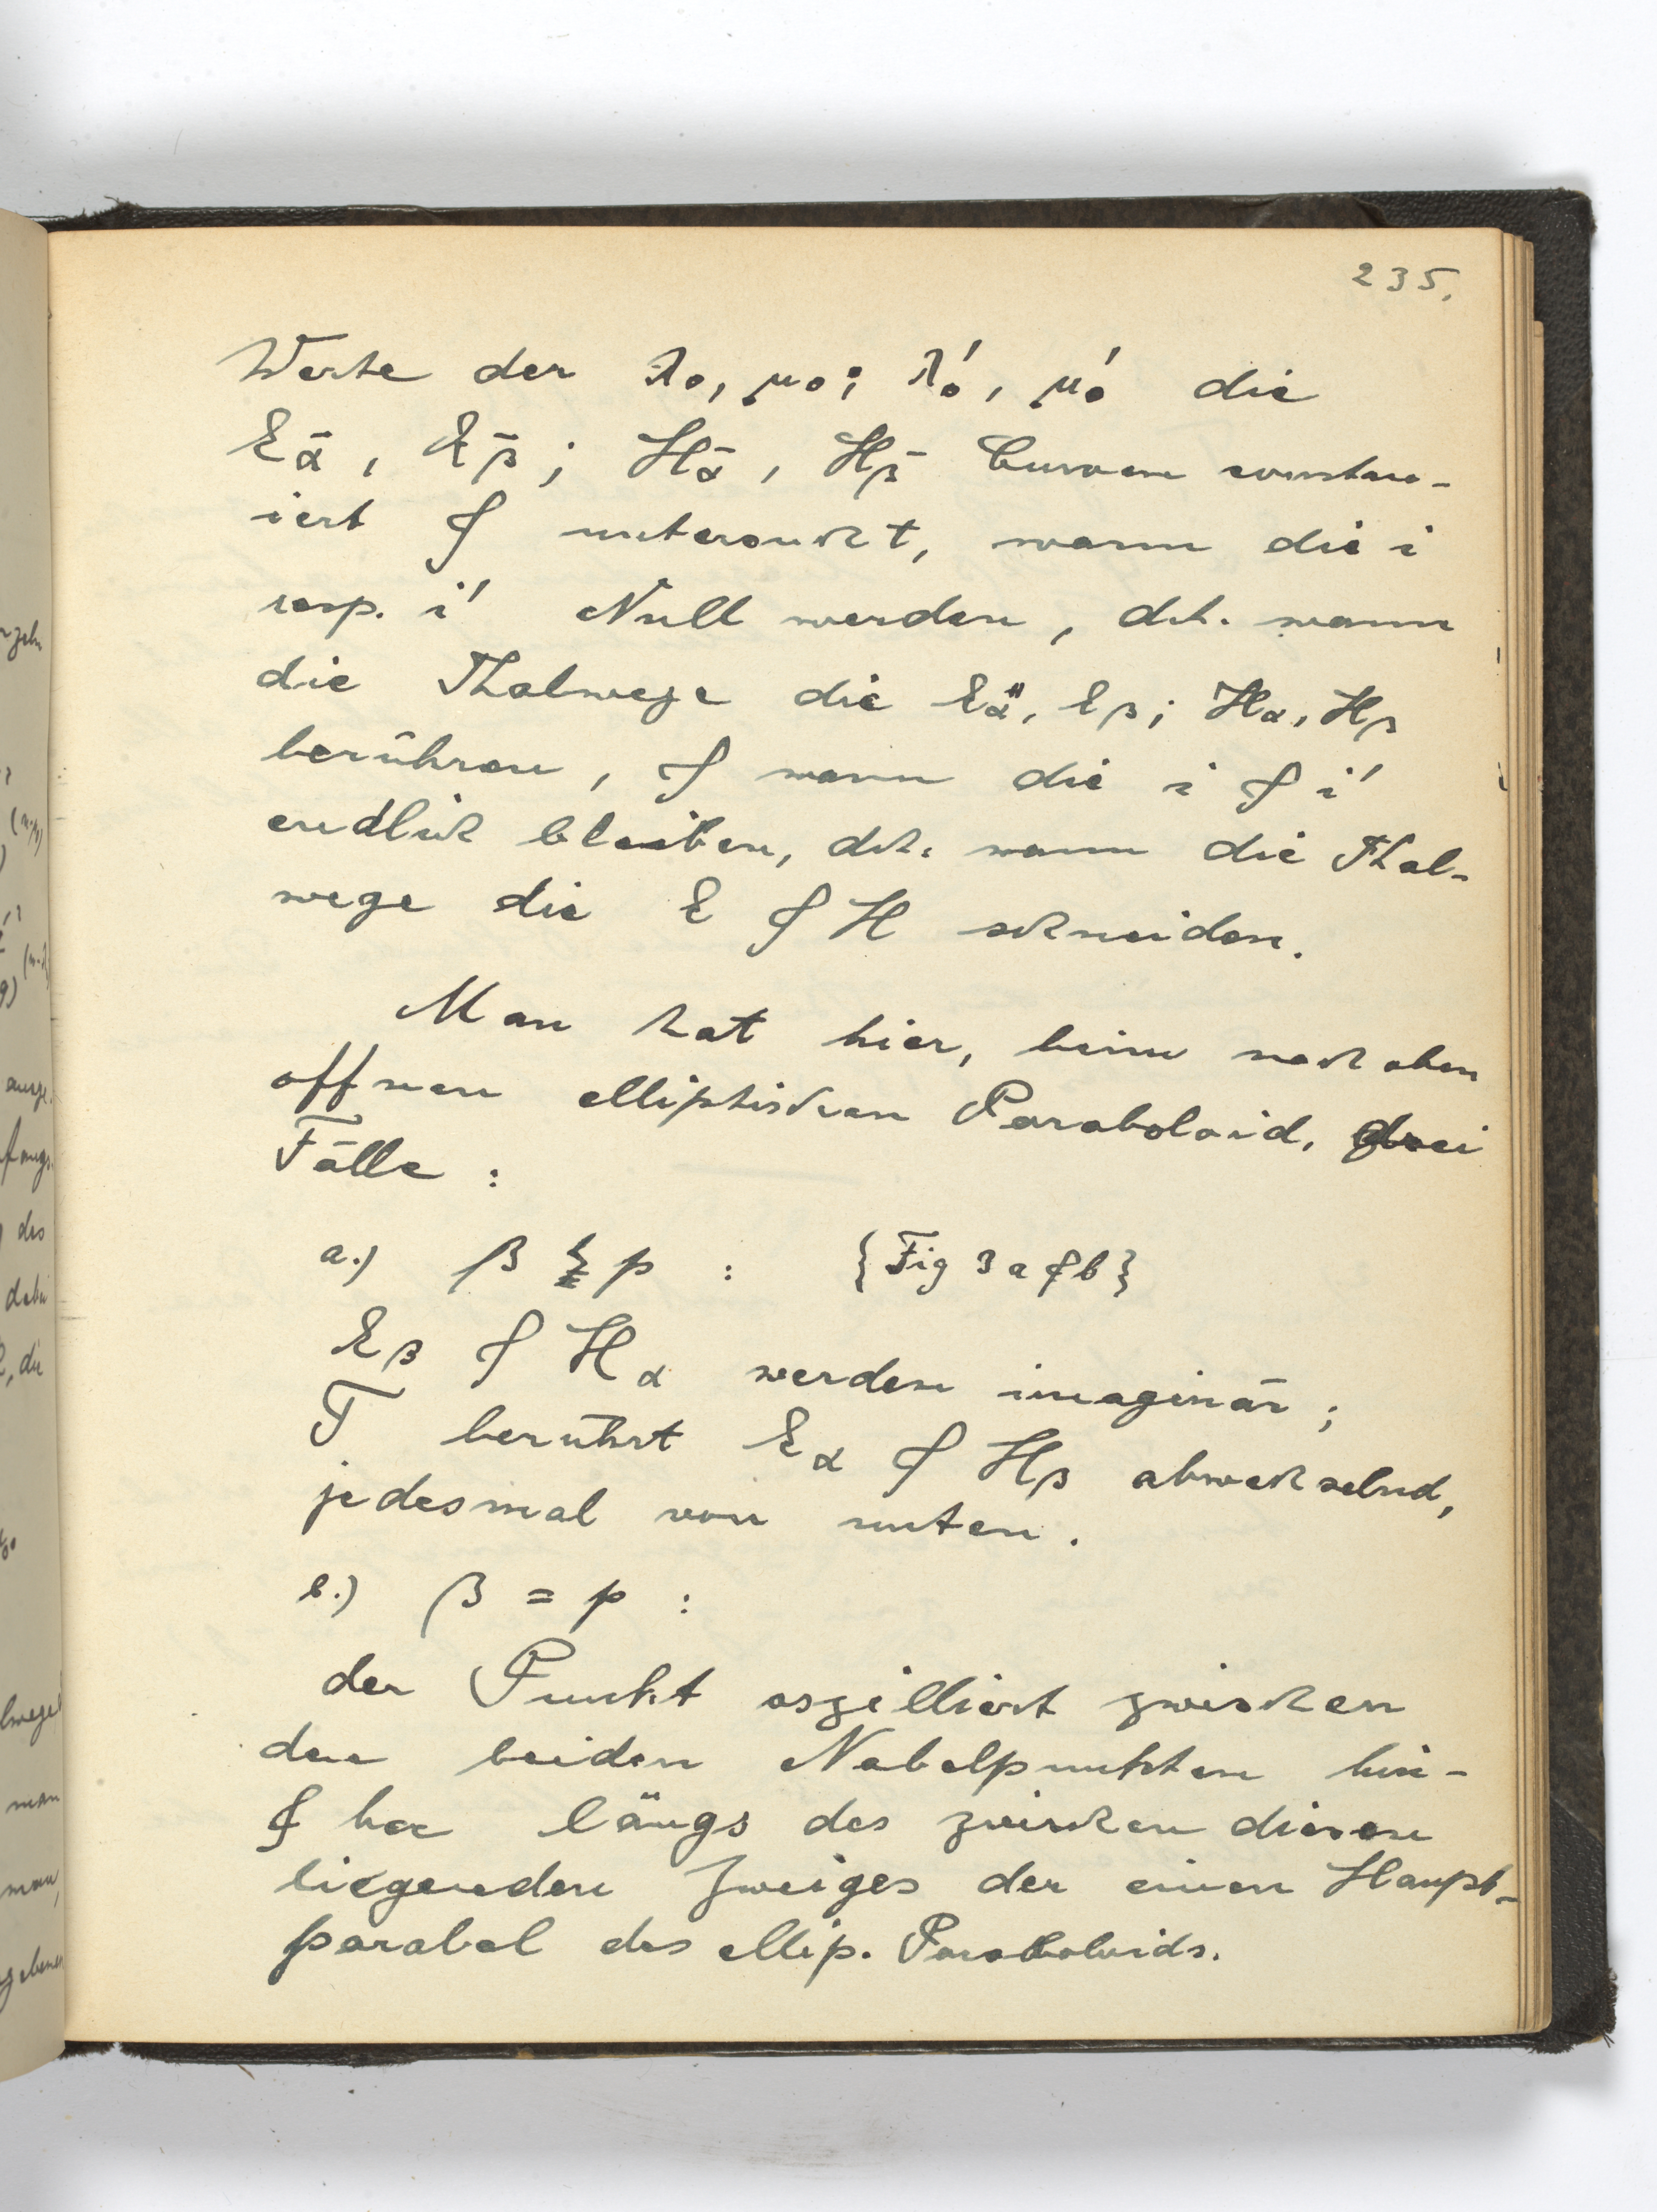 235.
Werte der λ₀, μ₀; λ₀', μ₀' die
E_ᾱ, E_β̄; H_ᾱ, H_β̄ Curven constru-
iert & untersucht, wann die i
resp. i' Null werden, d.h. wann
die Thalwege die E_α, E_β; H_α, H_β
berühren, & wann die i & i'
endlich bleiben, d.h. wann die Thal-
wege die E & H schneiden.
Man hat hier, beim nach oben
offnen elliptischen Paraboloid, drei
Fälle:
a.) β p : {Fig 3 a & b}
E_β & H_α werden imaginär;
T berührt E_α & H_β abwechselnd,
jedesmal von unten.
b.) β = p :
der Punkt oszilliert zwischen
den beiden Nabelpunkten hin-
& her längs des zwischen diesen
liegenden Zweiges der einen Haupt-
parabel des ellip. Paraboloids.